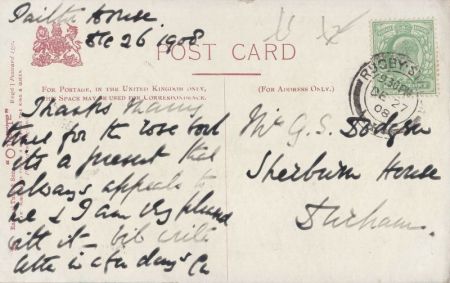 House.
Dec 26 1908
POST CARD
FOR POSTAGE, IN THE UNITED KINGDOM ONLY,
THIS SPACE MAY BE USED FOR CORRESPONDENCE.
(FOR ADDRESS ONLY.)
RUGBY S
DE 27
08
Thanks many
times for the rose book
its a present that
always appeals to
me & I am very pleased
with it - will write
letter in a few days
Mr G. S. Dodgson
Sherburn House
Durham.